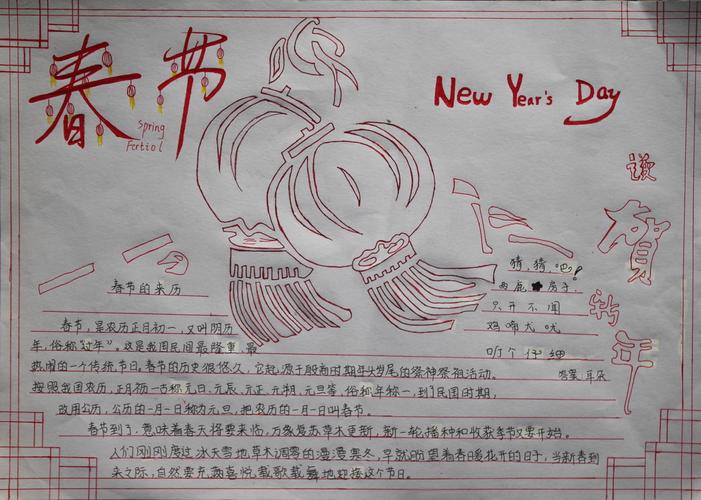 春节
Spring
Fertiol
New Year's Day
賀
新
年
猜,猜,吧!
房子
只开不闻
鸡啼犬吠
听个仔细
答案:耳朵
春节的来历
春节,是农历正月初一,又叫阴历
年,俗称“过年”。这是我国民间最隆重、最
热闹的一个传统节日。春节的历史很悠久,它起源于殷商时期年头岁尾的祭神祭祖活动。
按照我国农历,正月初一古称元日、元辰、元正、元朔、元旦等,俗称年初一,到了民国时期,
改用公历,公历的一月一日称为元旦,把农历的一月一日叫春节。
春节到了,意味着春天将要来临,万象复苏草木更新,新一轮播种和收获季节又要开始。
人们刚刚度过冰天雪地草木凋零的漫漫寒冬,早就盼望着春暖花开的日子,当新春到
来之际,自然要充满喜悦载歌载舞地迎接这个节日。